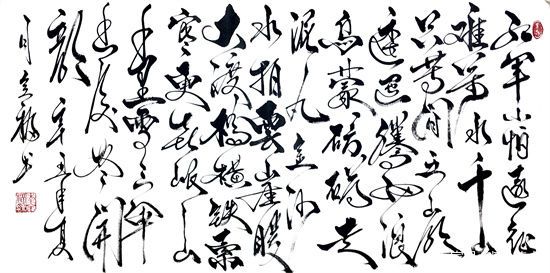 紅軍不怕遠征
難萬水千山
只等閒五嶺
逶迤騰細浪
烏蒙磅礴走
泥丸金沙
水拍雲崖暖
大渡橋橫鐵索
寒更喜岷山
千里雪三軍
過後盡開
顏 辛丑年夏
書